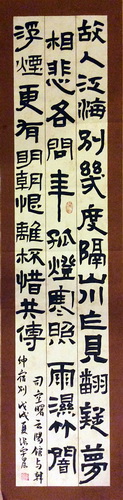 故人江海別幾度隔山川乍見翻疑夢
相悲各問年孤燈寒照雨濕竹闇
浮煙更有明朝恨離杯惜共傳
司空曙雲陽館與韓
紳宿別 戊戌夏